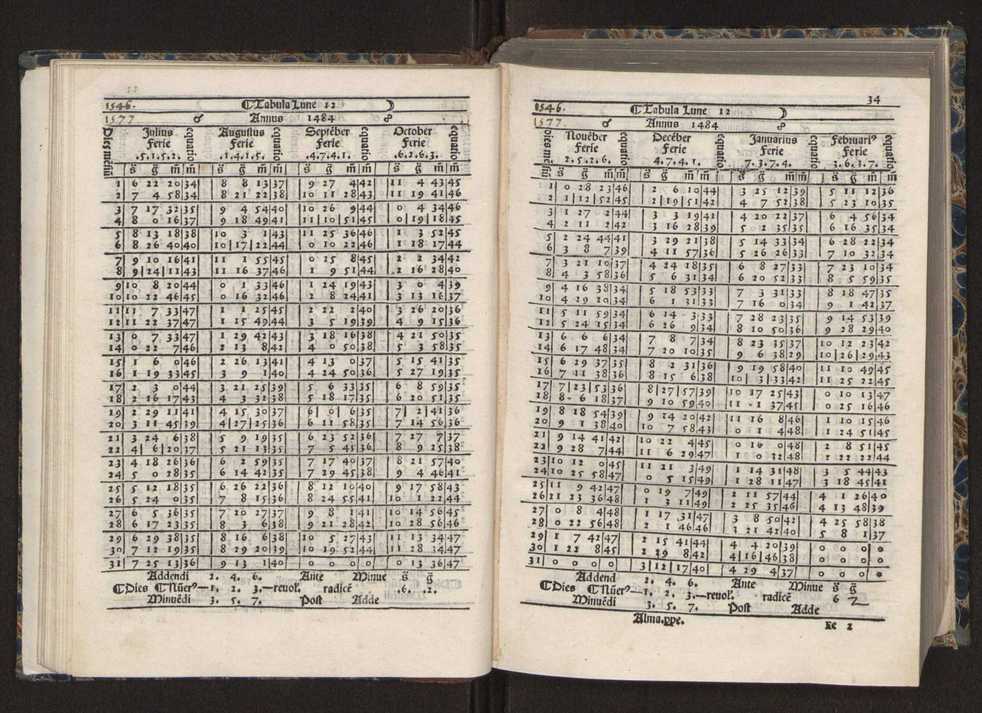 1546. ¶Tabula Lune 12 ☽
1577 ♂ Annus 1484 ☍
Dies mēsiū Julius equatio Augustus equatio Septēber equatio October equatio
Ferie Ferie Ferie Ferie
.5.1.5.2. .1.4.1.5. .4.7.4.1. .6.2.6.3.
s̄ ḡ m̄ m̄ s̄ ḡ m̄ m̄ s̄ ḡ m̄ m̄ s̄ ḡ m̄ m̄
1 6 22 20 34 8 8 13 37 9 27 4 42 11 4 43 45
2 7 4 58 34 8 21 22 38 10 11 28 43 11 19 41 46
3 7 17 32 35 9 4 54 40 10 26 9 44 0 4 34 46
4 8 0 16 37 9 18 49 41 11 10 51 45 0 19 18 45
5 8 13 18 38 10 3 1 43 11 25 36 46 1 3 52 45
6 8 26 40 40 10 17 22 44 0 10 22 46 1 18 17 44
7 9 10 16 41 11 1 55 45 0 25 8 45 2 2 34 42
8 9 24 11 43 11 16 37 46 1 9 51 44 2 16 28 40
9 10 8 20 44 0 1 33 46 1 24 19 43 3 0 4 39
10 10 22 46 45 0 16 32 46 2 8 24 41 3 13 16 37
11 11 7 33 47 1 1 25 45 2 22 2 40 3 26 20 36
12 11 22 37 47 1 15 49 44 3 5 19 39 4 9 15 36
13 0 7 33 47 1 29 42 43 3 18 16 38 4 21 50 35
14 0 22 7 46 2 13 8 42 4 0 50 38 5 3 58 35
15 1 6 0 46 2 26 13 41 4 13 0 37 5 15 41 35
16 1 19 33 45 3 9 1 40 4 24 50 36 5 27 19 35
17 2 3 0 44 3 21 25 39 5 6 33 35 6 8 59 35
18 2 16 17 43 4 3 31 38 5 18 17 35 6 20 51 35
19 2 29 11 41 4 15 30 37 6 0 6 35 7 2 41 36
20 3 11 45 39 4 27 25 36 6 11 58 35 7 14 56 36
21 3 24 6 38 5 9 19 35 6 23 52 36 7 27 7 37
22 4 6 20 37 5 21 13 35 7 5 45 36 8 9 25 38
23 4 18 26 36 6 2 59 35 7 17 40 37 8 21 57 40
24 5 0 28 35 6 14 42 35 7 29 45 38 9 4 46 41
25 5 12 18 35 6 26 22 36 8 12 10 40 9 17 58 43
26 5 24 0 35 7 8 15 36 8 24 55 41 10 1 22 44
27 6 5 36 35 7 20 27 37 9 8 1 41 10 14 56 45
28 6 17 23 35 8 3 6 38 9 21 28 42 10 28 56 46
29 6 29 38 35 8 16 6 38 10 5 27 43 11 13 34 47
30 7 12 19 35 8 29 20 39 10 19 52 44 11 28 14 47
31 7 25 13 36 9 13 1 40 0 0 0 0 0 13 36 47
Addendi 2. 4. 6. Ante Minue s̄ ḡ
¶Dies ¶Nūerꝰ—1. 2. 3.—reuol. radicē .6. .2.
Minuēdi 3. 5. 7. Post Adde
34
1546. ¶Tabula Lune 12 ☽
1577. ♂ Annus 1484 ☍
Dies mēsiū Nouēber equatio Decēber equatio Januarius equatio Februariꝰ equatio
Ferie Ferie Ferie Ferie
2.5.2.6. 4.7.4.1. 7.3.7.4. 3.6.3.7.
s̄ ḡ m̄ m̄ s̄ ḡ m̄ m̄ s̄ ḡ m̄ m̄ s̄ ḡ m̄ m̄
1 0 28 23 46 2 6 10 44 3 25 12 39 5 11 12 36
2 1 12 52 45 2 19 51 42 4 7 52 38 5 23 10 35
3 1 27 2 44 3 3 19 41 4 20 22 37 6 4 56 34
4 2 11 2 42 3 16 28 39 5 2 35 35 6 16 35 34
5 2 24 44 41 3 29 21 38 5 14 33 34 6 28 22 34
6 3 8 7 39 4 11 57 36 5 26 26 33 7 10 32 34
7 3 21 10 37 4 24 18 35 6 8 27 33 7 23 10 34
8 4 3 58 36 5 6 31 34 6 20 52 33 8 5 59 35
9 4 16 38 34 5 18 53 33 7 3 31 33 8 18 47 35
10 4 29 10 34 6 1 31 33 7 16 0 34 9 1 42 37
11 5 11 59 34 6 14 3 33 7 28 23 35 9 14 53 39
12 5 24 15 34 6 26 9 34 8 10 50 36 9 28 29 40
13 6 6 6 34 7 8 7 34 8 23 35 37 10 12 23 42
14 6 17 48 34 7 20 10 35 9 6 38 29 10 26 29 43
15 6 29 37 35 8 2 31 36 9 19 58 40 11 10 49 45
16 7 11 38 36 8 15 6 38 10 3 33 42 11 25 22 45
17 7 23 53 36 8 27 57 39 10 17 25 43 0 10 13 47
18 8 6 18 37 9 10 59 40 11 1 37 45 0 25 16 46
19 8 18 54 39 9 24 20 42 11 16 8 46 1 10 15 46
20 9 1 38 40 10 7 58 43 0 1 4 48 1 24 51 45
21 9 14 41 42 10 22 4 45 0 16 0 48 2 8 51 45
22 9 28 7 44 11 6 29 47 1 0 32 48 2 22 22 44
23 10 12 0 45 11 21 3 49 1 14 31 48 3 5 44 43
24 10 25 58 47 0 5 15 49 1 28 11 47 3 18 45 41
25 11 9 42 47 0 19 7 49 2 11 57 44 4 1 26 40
26 11 23 36 48 1 3 11 49 2 25 35 46 4 13 48 39
27 0 8 4 48 1 17 31 47 3 8 50 42 4 25 58 38
28 0 22 56 48 2 1 46 46 3 21 42 40 5 8 1 37
29 1 7 42 47 2 15 41 44 4 4 20 39 0 0 0 0
30 1 22 8 45 2 29 8 42 4 16 46 38 0 0 0 0
31 0 0 0 0 3 12 17 40 4 29 4 37 0 0 0 0
Addend 2. 4. 6. Ante Minue s̄ ḡ
¶Dies ¶Nūerꝰ—1. 2. 3.—reuol. radicē 6 2
Minuēdi 3. 5. 7. Post Adde
Alma.ppe. Ee 2